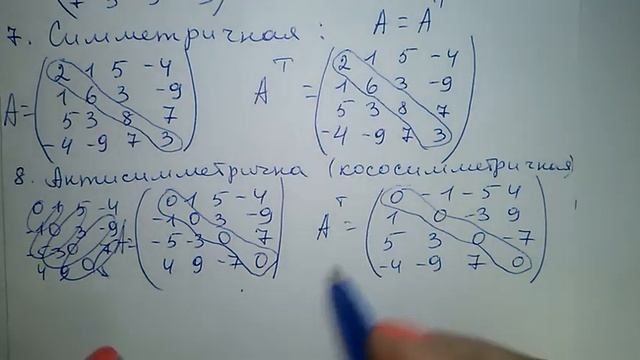 7. Симметричная : A = Aᵀ
A = (2 1 5 -4
1 6 3 -9
5 3 8 7
-4 -9 7 3)
Aᵀ = (2 1 5 -4
1 6 3 -9
5 3 8 7
-4 -9 7 3)
8. Антисимметрична (кососимметричная)
A = (0 1 5 -4
-1 0 3 -9
-5 -3 0 7
4 9 -7 0)
Aᵀ = (0 -1 -5 4
1 0 -3 9
5 3 0 -7
-4 -9 7 0)